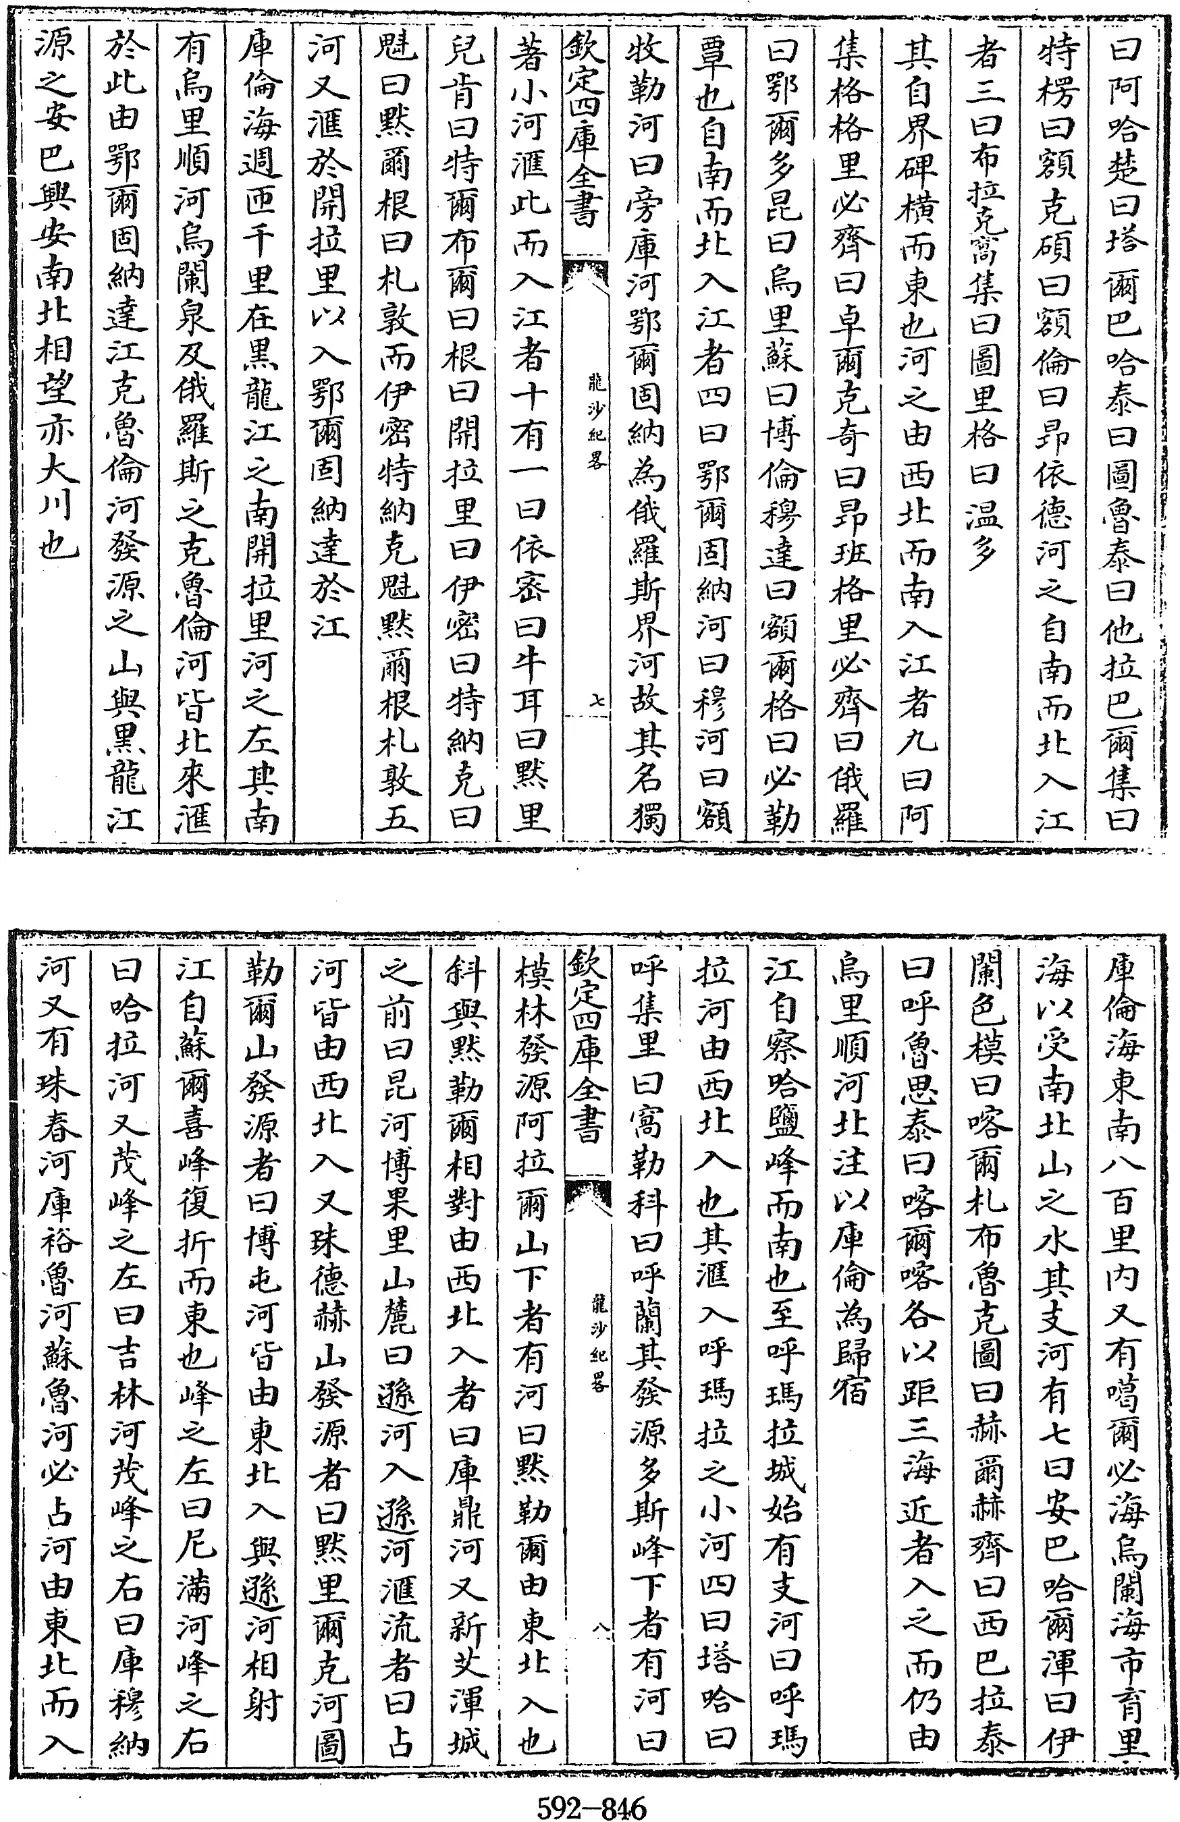 曰阿哈楚曰塔爾巴哈泰曰圖魯泰曰他拉巴爾集曰
特楞曰額克碩曰額倫曰昂依德河之自南而北入江
者三曰布拉克窩集曰圖里格曰溫多
其自界碑橫而東也河之由西北而南入江者九曰阿
集格格里必齊曰卓爾克奇曰昂班格里必齊曰俄羅
曰鄂爾多昆曰烏里蘇曰博倫穆達曰額爾格曰必勒
覃也自南而北入江者四曰鄂爾固納河曰穆河曰額
牧勒河曰旁庫河鄂爾固納為俄羅斯界河故其名獨
欽定四庫全書
龍沙紀畧
七
著小河滙此而入江者十有一曰依宻曰牛耳曰默里
兒肯曰特爾布爾曰根曰開拉里曰伊密曰特納克曰
魁曰默爾根曰札敦而伊密特納克魁默爾根札敦五
河又滙於開拉里以入鄂爾固納達於江
庫倫海週匝千里在黑龍江之南開拉里河之左其南
有烏里順河烏蘭泉及俄羅斯之克魯倫河皆北來滙
於此由鄂爾固納達江克魯倫河發源之山與黑龍江
源之安巴興安南北相望亦大川也
庫倫海東南八百里内又有噶爾必海烏闌海市育里
海以受南北山之水其支河有七曰安巴哈爾渾曰伊
闌色模曰喀爾札布魯克圖曰赫爾赫齊曰西巴拉泰
曰呼魯思泰曰喀爾喀各以距三海近者入之而仍由
烏里順河北注以庫倫為歸宿
江自察哈鹽峰而南也至呼瑪拉城始有支河曰呼瑪
拉河由西北入也其滙入呼瑪拉之小河四曰塔哈曰
呼集里曰窩勒科曰呼蘭其發源多斯峰下者有河曰
欽定四庫全書
龍沙紀畧
八
模林發源阿拉爾山下者有河曰默勒爾由東北入也
斜與默勒爾相對由西北入者曰庫鼎河又新艾渾城
之前曰昆河博果里山麓曰遜河入遜河滙流者曰占
河皆由西北入又珠德赫山發源者曰默里爾克河圖
勒爾山發源者曰博屯河皆由東北入與遜河相射
江自蘇爾喜峰復折而東也峰之左曰尼滿河峰之右
曰哈拉河又茂峰之左曰吉林河茂峰之右曰庫穆納
河又有珠春河庫裕魯河蘇魯河必占河由東北而入
592-846